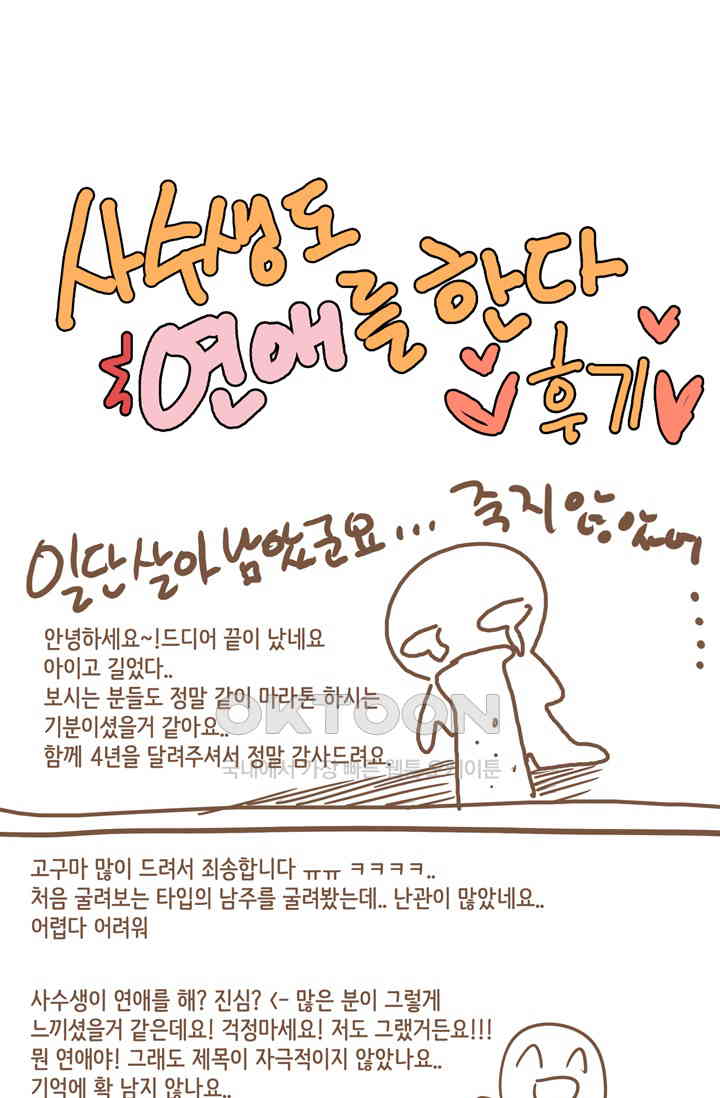 사수생도
연애를 한다
후기
일단 살아남았군요... 죽지 않았어
....
안녕하세요~!드디어 끝이 났네요
아이고 길었다..
보시는 분들도 정말 같이 마라톤 하시는
기분이셨을거 같아요..
함께 4년을 달려주셔서 정말 감사드려요.
OKTOON
국내에서 가장 빠른 웹툰 오케이툰
고구마 많이 드려서 죄송합니다 ㅠㅠ ㅋㅋㅋㅋ..
처음 굴려보는 타입의 남주를 굴려봤는데.. 난관이 많았네요..
어렵다 어려워
사수생이 연애를 해? 진심? <- 많은 분이 그렇게
느끼셨을거 같은데요! 걱정마세요! 저도 그랬거든요!!!
뭔 연애야! 그래도 제목이 자극적이지 않았나요..
기억에 확 남지 않나요..